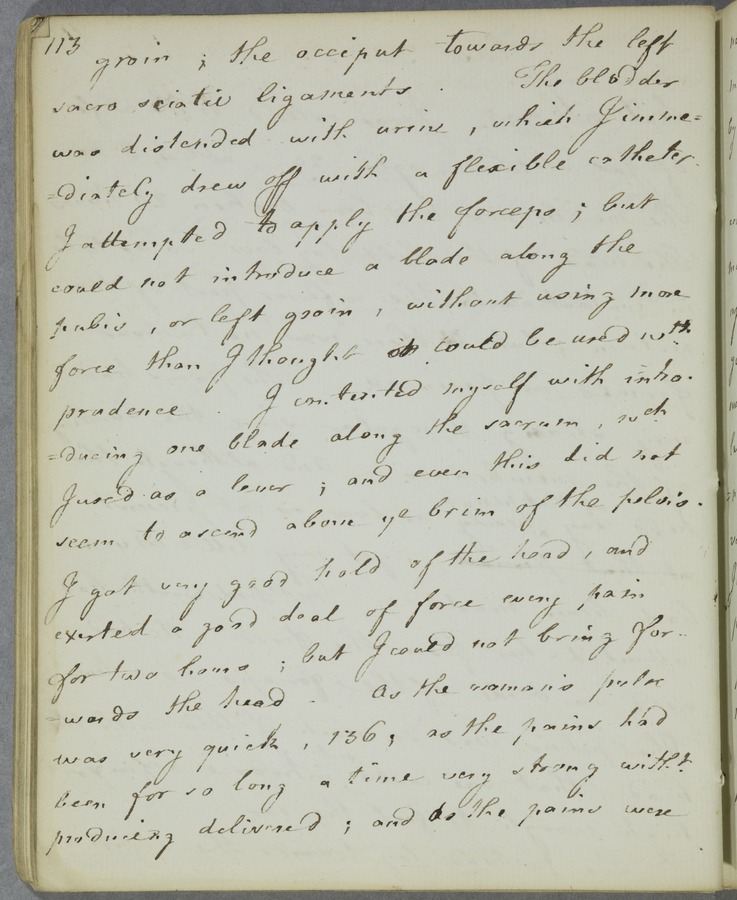 113
groin ; the occiput towards the left
sacro sciatic ligaments . The bladder
was distended with urine , which I imme=
=diately drew off with a flexible catheter.
I attempted to apply the forceps ; but
could not introduce a blade along the
pubis , or left groin , without using more
force than I thought could be used wth.
prudence . I contented myself with intro-
=ducing one blade along the sacrum , wch
I used as a lever ; and even this did not
seem to ascend above ye brim of the pelvis.
I got very good hold of the head , and
exerted a good deal of force every pain
for two hours ; but I could not bring for-
=wards the head . As the woman's pulse
was very quick , 136 ; as the pains had
been for so long a time very strong witht.
producing delivered ; and as the pains were